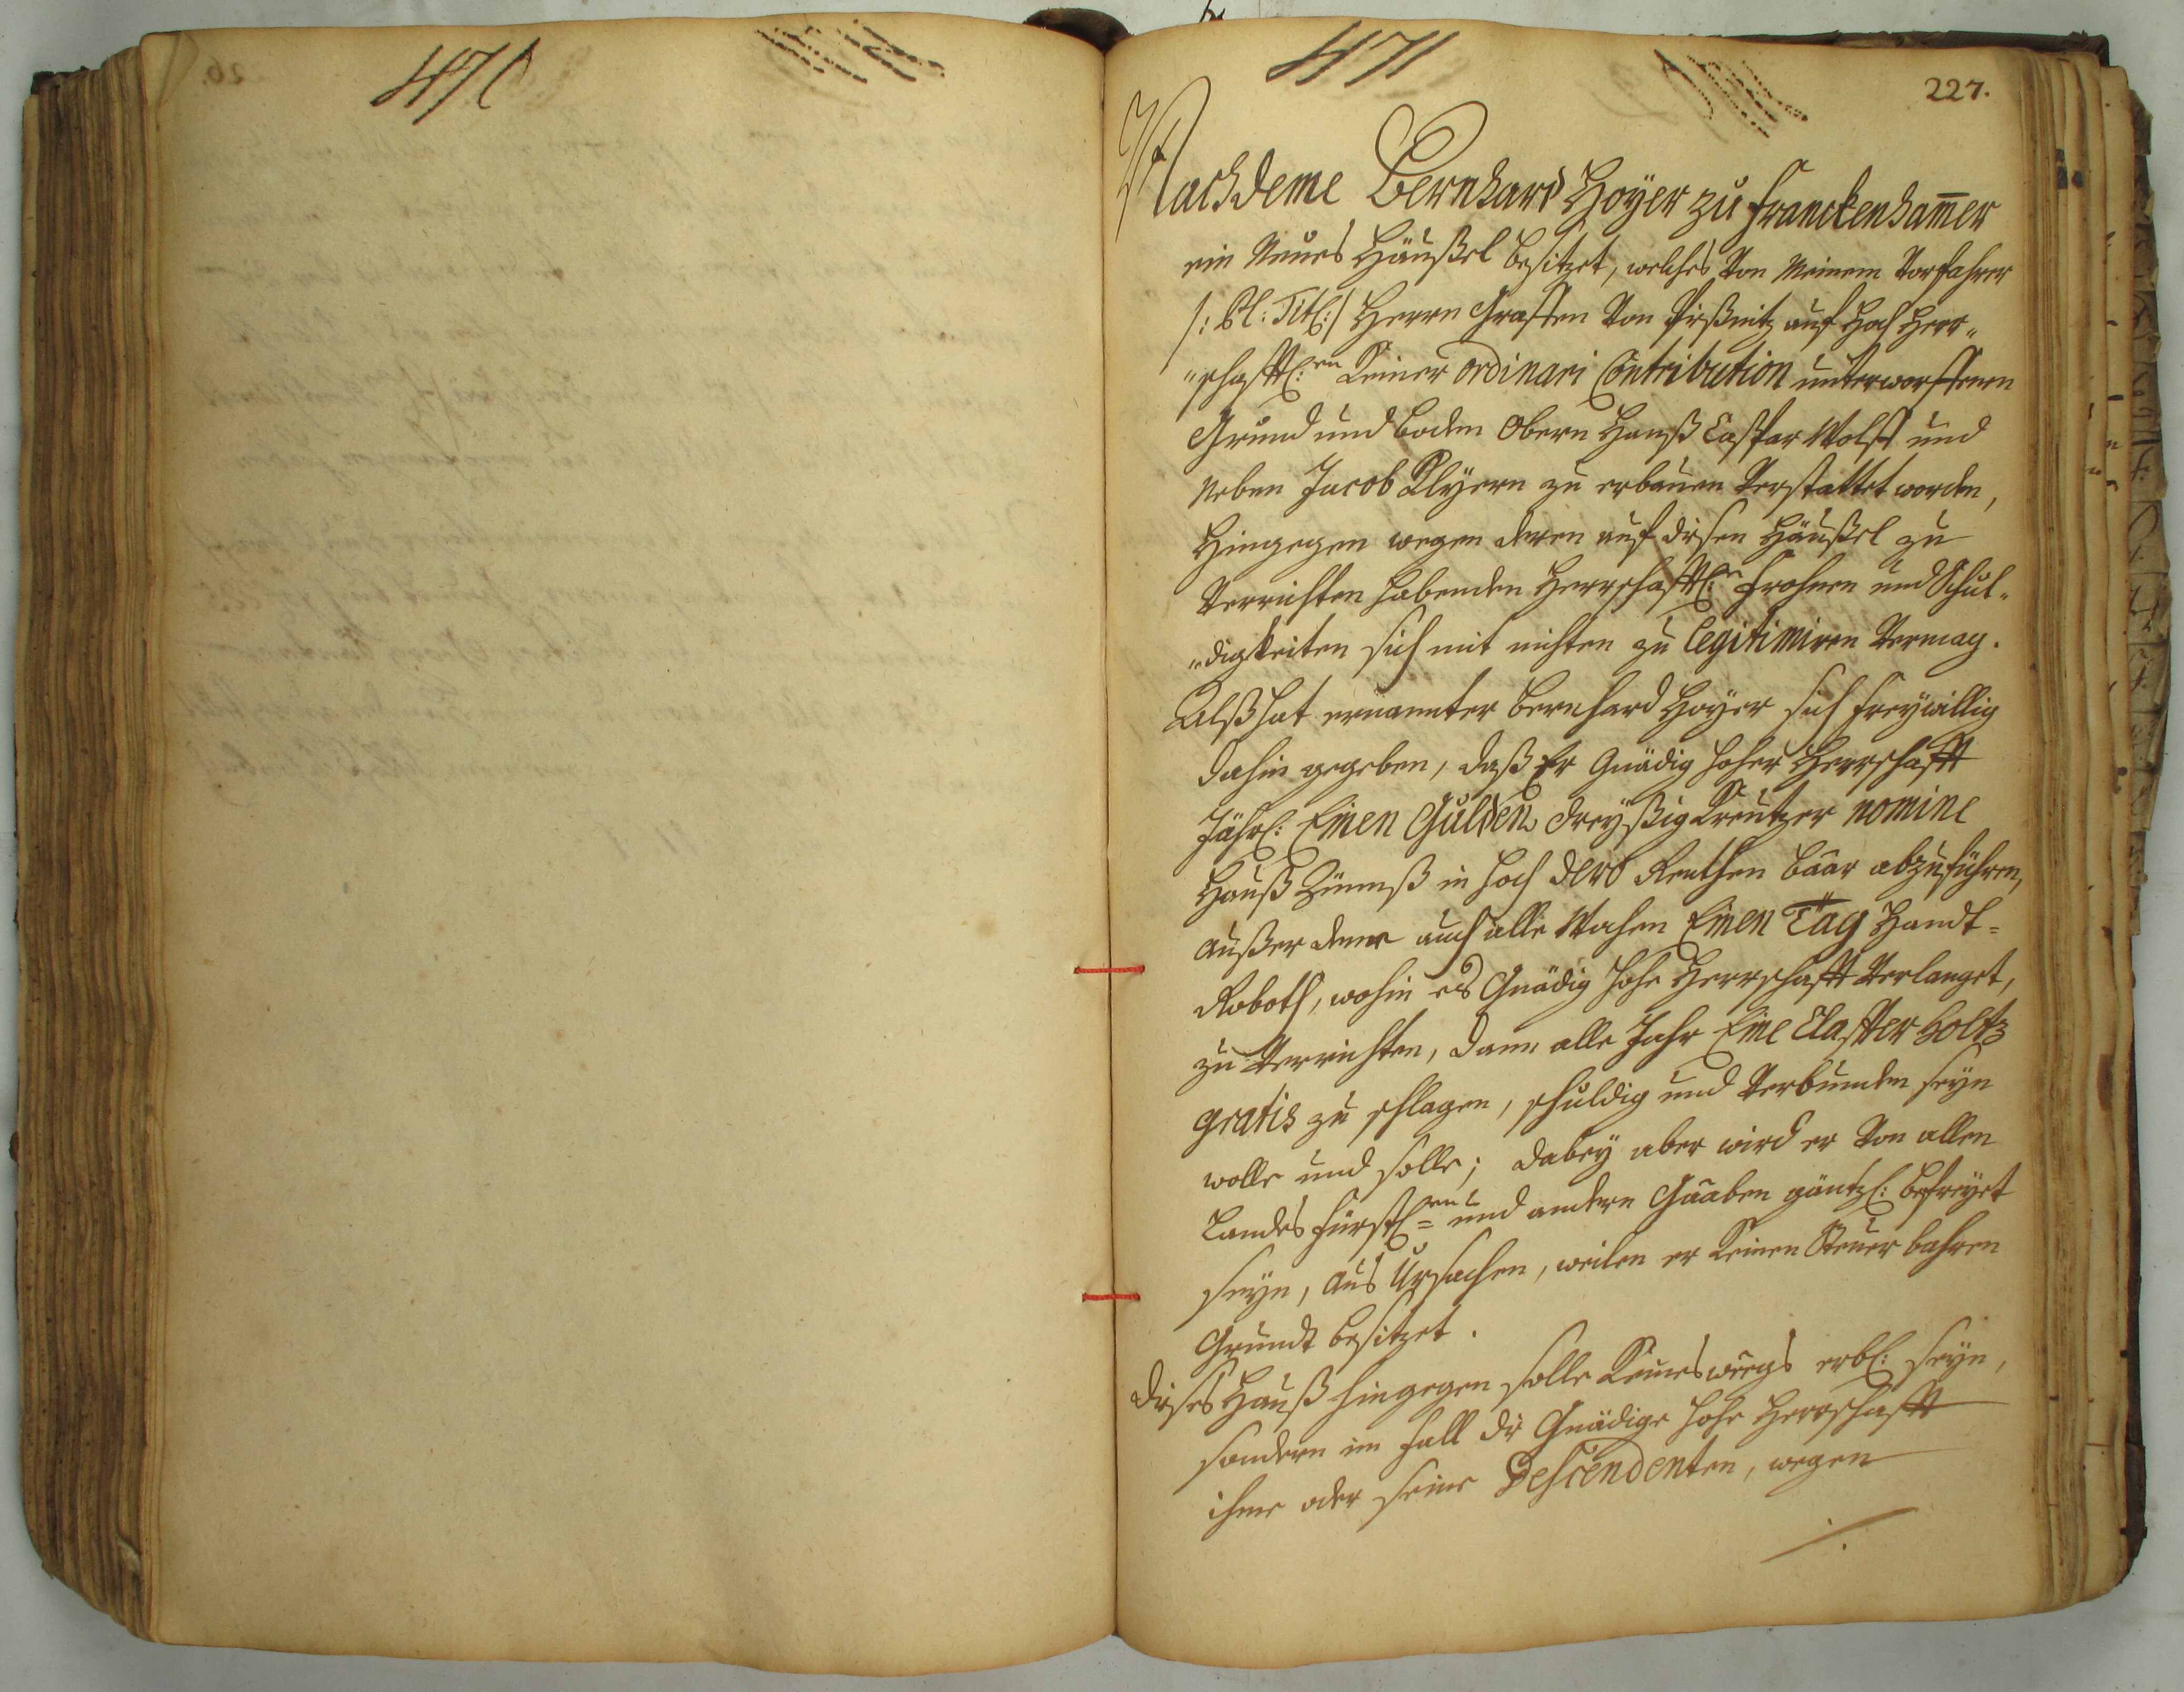 471
471
227.
Nachdeme Bernhard Hoÿer zu Franckenham̅er
ein Neues Häußel besitzet, welches Von Meinem Vorfahrer
/: Pl: Titl: / Herrn Graffen Von Pirßnitz auf Hoch Herr„
„schafftl:en Keiner ordinari Contribution unterworffenen
Grund und Boden Obern Hanß Caspar Wolff und
Neben Jacob Klÿern zu erbauen Verstattet worden,
Hingegen wegen deren auf disen Häußel zu
Verrichten habenden Herrschafftl:n Frohnen und Schul„
„digkeiten sich mit nichten zu legitimiren Vermag.
Alß hat ernannter Bernhard Hoÿer sich freÿwillig
dahin gegeben, daß Er Gnädig hoher Herrschafft
Jährl: Einen Gulden dreÿßig Kreutzer nomine
Hauß Zünnß in hoch dero Renthen baar abzuführen,
außer deme auch alle Wochen Einen Tag Handt=
Roboth, wohin es Gnädig hohe Herrschafft Verlanget,
zu Verrichten, dann alle Jahr Eine Claffter Holtz
gratis zu schlagen, schuldig und Verbunden seÿn
wolle und solle; dabeÿ aber wird er Von allen
Landes fürstl=en und andern Gaaben gäntzl: befreÿet
seÿn, aus Ursachen, weilen er keinen Steuer bahren
Grundt besitzet.
Dises Hauß hingegen solle Keinesweegs erbl: seÿn,
sondern im fall die Gnädige hohe Herrschafft
ihme oder seine Descendenten, wegen
./.